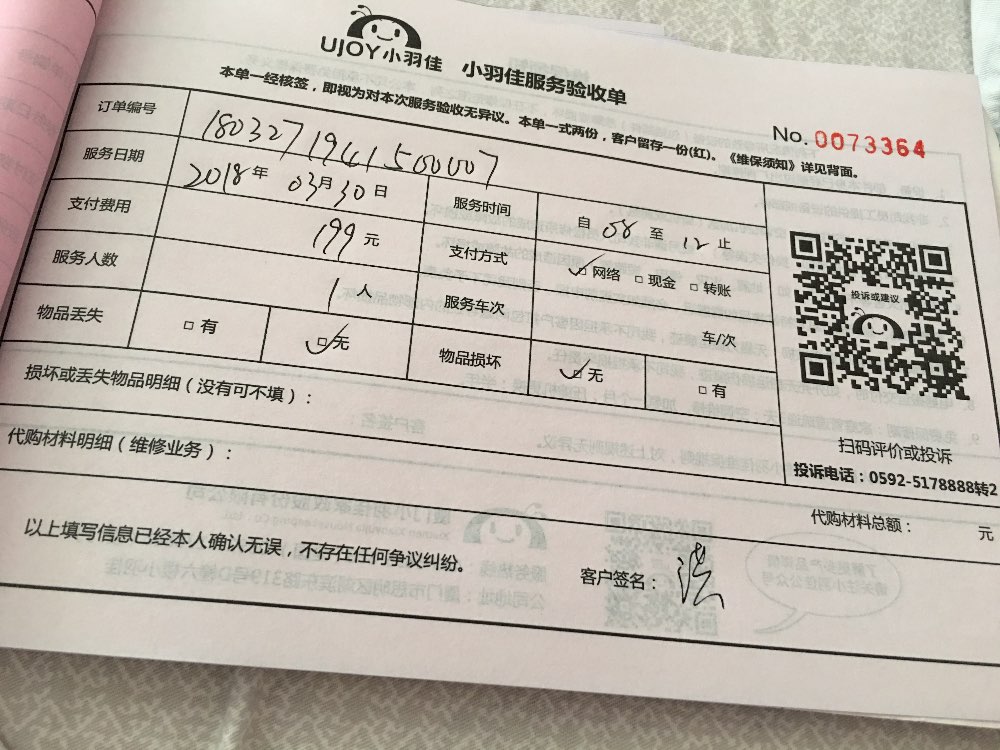 UJOY小羽佳 小羽佳服务验收单
本单一经核签，即视为对本次服务验收无异议。本单一式两份，客户留存一份(红)。《维保须知》详见背面。
No. 0073364
订单编号 180327194150007
服务日期 2018年 03月30日 服务时间 自 08 至 12 止
支付费用 199元 支付方式 ☑网络 □现金 □转账
服务人数 1人 服务车次 车/次
物品丢失 □有 ☑无 物品损坏 ☑无 □有
投诉或建议
扫码评价或投诉
投诉电话：0592-5178888转2
损坏或丢失物品明细（没有可不填）：
代购材料明细（维修业务）：
代购材料总额： 元
以上填写信息已经本人确认无误，不存在任何争议纠纷。
客户签名：